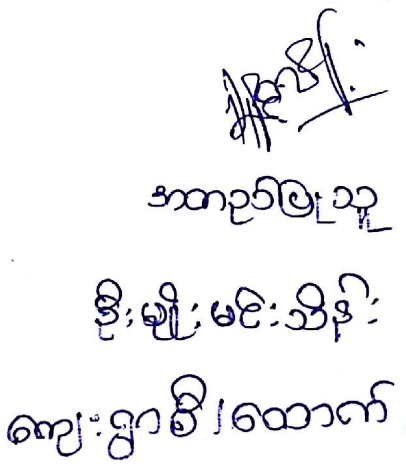 အတည်ပြုသူ
ဦးမျိုးမင်းသိန်း
ကျေးရွာစီ/ထောက်